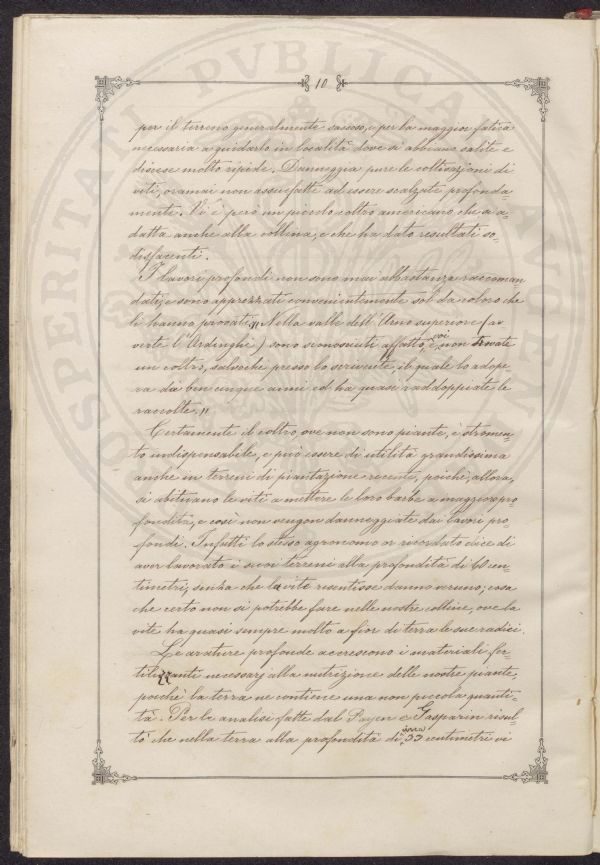 10
per il terreno generalmente sassoso, e per la maggior fatica
necessaria a guidarlo in località dove si abbiano salite e
discese molto ripide. Danneggia pure le coltivazioni di
viti, oramai non assuefatte ad essere scalzate profonda=
mente. Vi è però un piccolo coltro americano, che si a=
datta anche alla collina, e che ha dato resultati so=
disfacenti.
I lavori profondi non sono mai abbastanza raccoman
dati, e sono apprezzati convenientemente sol da coloro che
li hanno provati. „Nella valle dell'Arno superiore (av
verte l'Ardinghi) sono sconosciuti affatto, e voi non trovate
un coltro, salvoche presso lo scrivente, il quale lo adope
ra da ben cinque anni ed ha quasi raddoppiate le
raccolte.„
Certamente il coltro, ove non sono piante, è strumen=
to indispensabile, e può essere di utilità grandissima
anche in terreni di piantazione recente, poichè allora,
si abituano le viti a mettere le loro barbe a maggior pro
fondità, e così non vengon danneggiate dai lavori pro=
fondi. Infatti lo stesso agronomo or ricordato dice di
aver lavorato i suoi terreni alla profondità di 60 cen=
timetri, senza che la vite risentisse danno veruno; cosa
che certo non si potrebbe fare nelle nostre colline, ove la
vite ha quasi sempre molto a fior di terra le sue radici.
Le arature profonde accrescono i materiali fer=
tilizzanti necessarj alla nutrizione delle nostre piante,
poichè la terra ne contiene una non piccola quanti=
tà. Per le analisi fatte dal Payen e Gasparin risul=
tò che nella terra alla profondità di circa 33 centimetri vi
PROSPERITATI PVBLICAE AVGENDAE